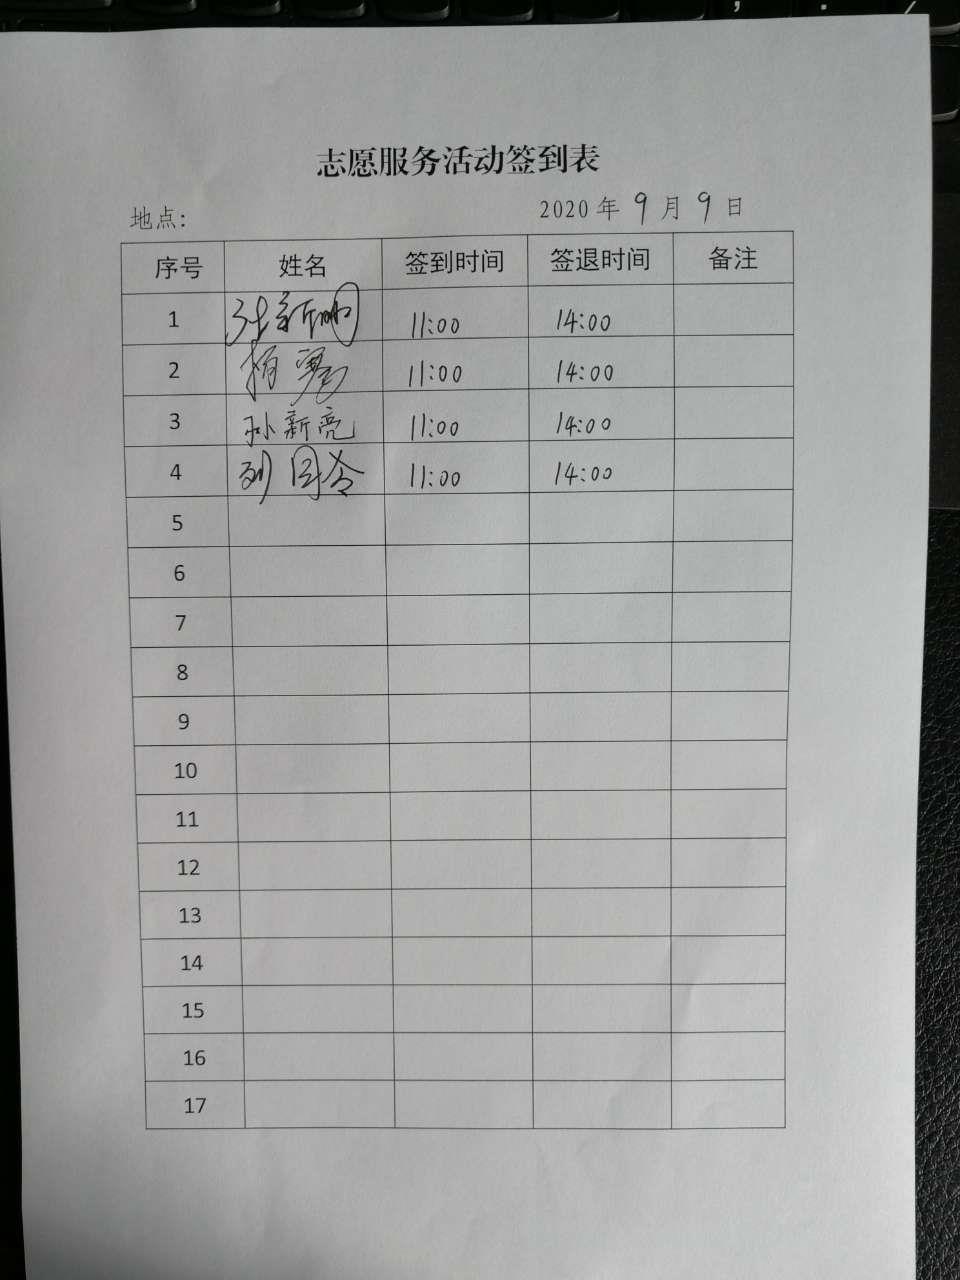 志愿服务活动签到表
地点: 2020 年 9 月 9 日
序号 姓名 签到时间 签退时间 备注
1 张新明 11:00 14:00
2 11:00 14:00
3 孙新亮 11:00 14:00
4 11:00 14:00
5
6
7
8
9
10
11
12
13
14
15
16
17